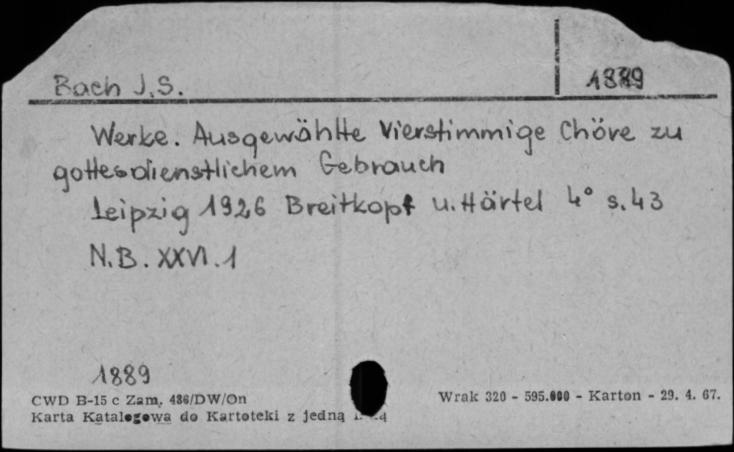 Bach J.S. 1889
Werke. Ausgewählte Vierstimmige Chöre zu
gottesdienstlichem Gebrauch
Leipzig 1926 Breitkopf u. Härtel 4° s. 43
N.B. XXVI.1
1889
CWD B-15 c Zam. 486/DW/On
Karta Katalogowa do Kartoteki z jedną
Wrak 320 - 595.000 - Karton - 29. 4. 67.